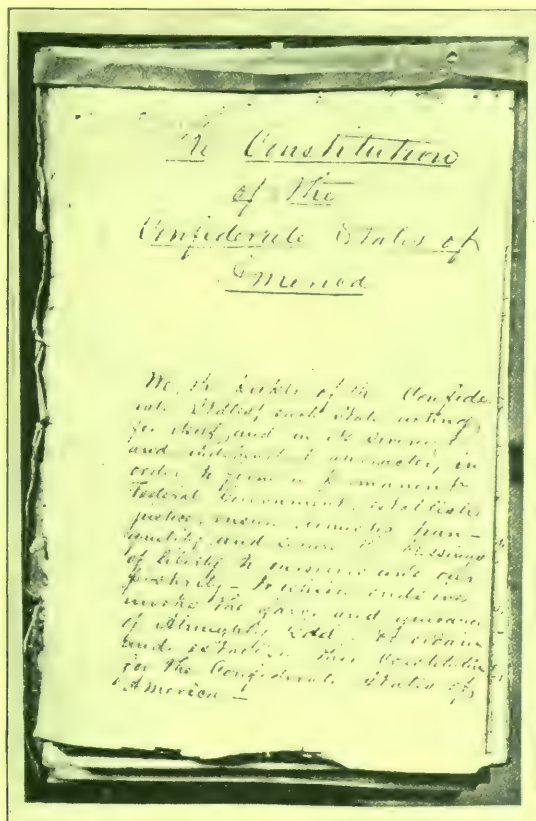 The Constitution
of the
Confederate States of
America
We, the people of the Confede-
rate States, each state acting
for itself, and in its sovereign
and independent character, in
order to form a permanent
Federal Government, establish
justice, insure domestic tran-
quility and secure the blessings
of liberty to ourselves and our
posterity – to which ends we
invoke the favor and guidance
of Almighty God – do ordain
and establish this Constitution
for the Confederate States of
America –